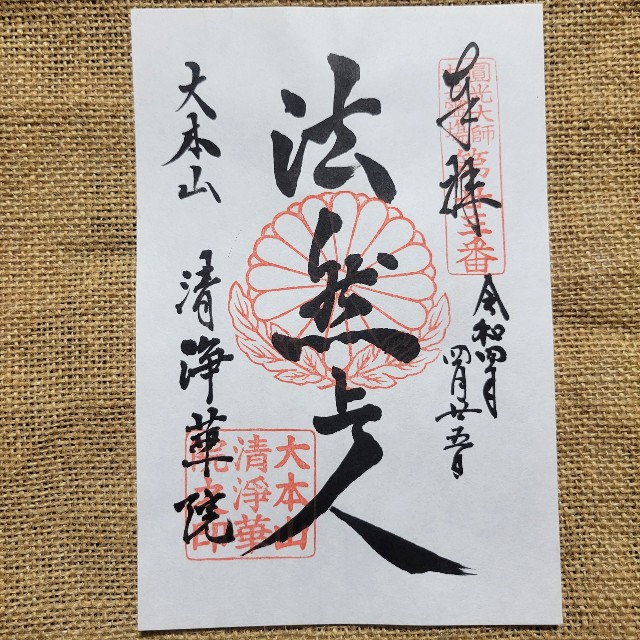 奉拝
圓光大師
第廿三番
令和四年
四月廿五日
法然上人
大本山 清浄華院
大本山
清淨華
院之印